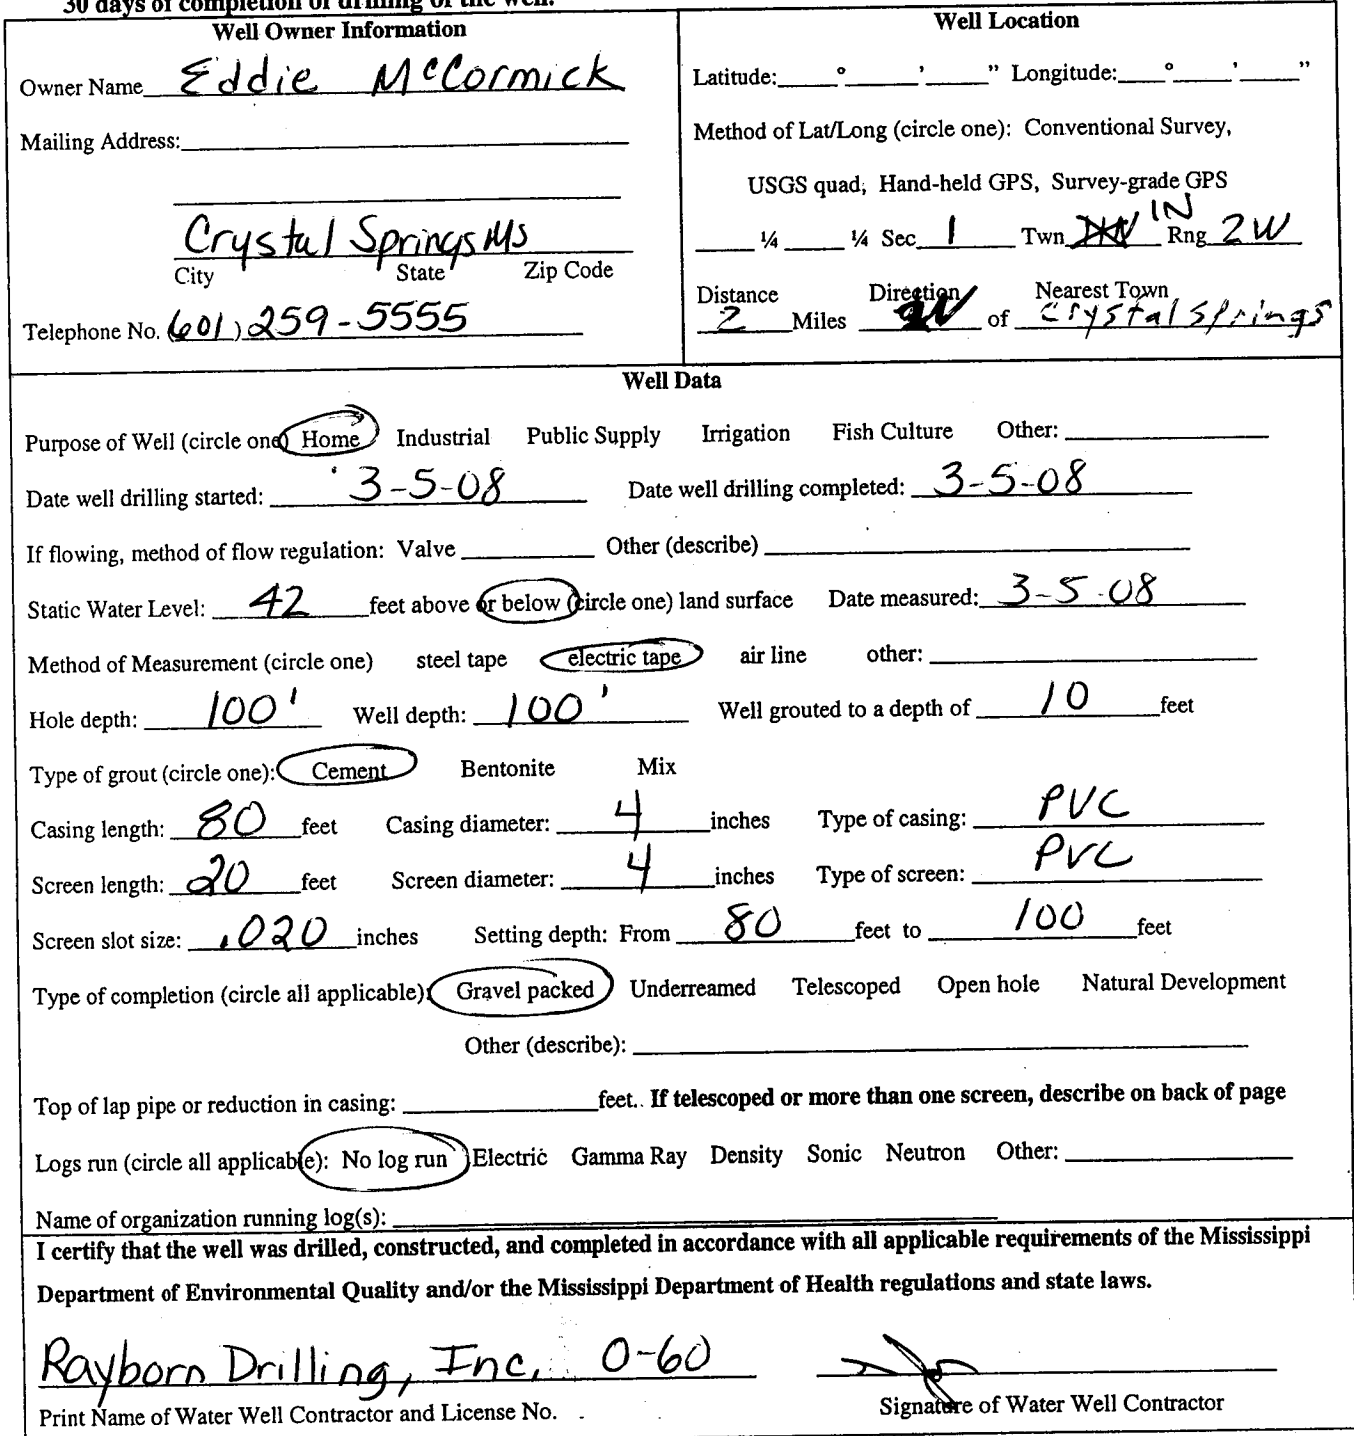 30 days of completion of drilling of the well.
Well Owner Information
Owner Name Eddie McCormick
Mailing Address:
Crystal Springs MS
City State Zip Code
Telephone No. (601) 259-5555
Well Location
Latitude: ° ' " Longitude: ° ' "
Method of Lat/Long (circle one): Conventional Survey,
USGS quad, Hand-held GPS, Survey-grade GPS
¼ ¼ Sec 1 Twn 1N Rng 2W
Distance Direction Nearest Town
2 Miles of Crystal Springs
Well Data
Purpose of Well (circle one) Home Industrial Public Supply Irrigation Fish Culture Other:
Date well drilling started: 3-5-08 Date well drilling completed: 3-5-08
If flowing, method of flow regulation: Valve Other (describe)
Static Water Level: 42 feet above or below (circle one) land surface Date measured: 3-5-08
Method of Measurement (circle one) steel tape electric tape air line other:
Hole depth: 100' Well depth: 100' Well grouted to a depth of 10 feet
Type of grout (circle one): Cement Bentonite Mix
Casing length: 80 feet Casing diameter: 4 inches Type of casing: PVC
Screen length: 20 feet Screen diameter: 4 inches Type of screen: PVC
Screen slot size: .020 inches Setting depth: From 80 feet to 100 feet
Type of completion (circle all applicable): Gravel packed Underreamed Telescoped Open hole Natural Development
Other (describe):
Top of lap pipe or reduction in casing: feet. If telescoped or more than one screen, describe on back of page
Logs run (circle all applicable): No log run Electric Gamma Ray Density Sonic Neutron Other:
Name of organization running log(s):
I certify that the well was drilled, constructed, and completed in accordance with all applicable requirements of the Mississippi
Department of Environmental Quality and/or the Mississippi Department of Health regulations and state laws.
Rayborn Drilling, Inc. 0-60
Print Name of Water Well Contractor and License No.
Signature of Water Well Contractor